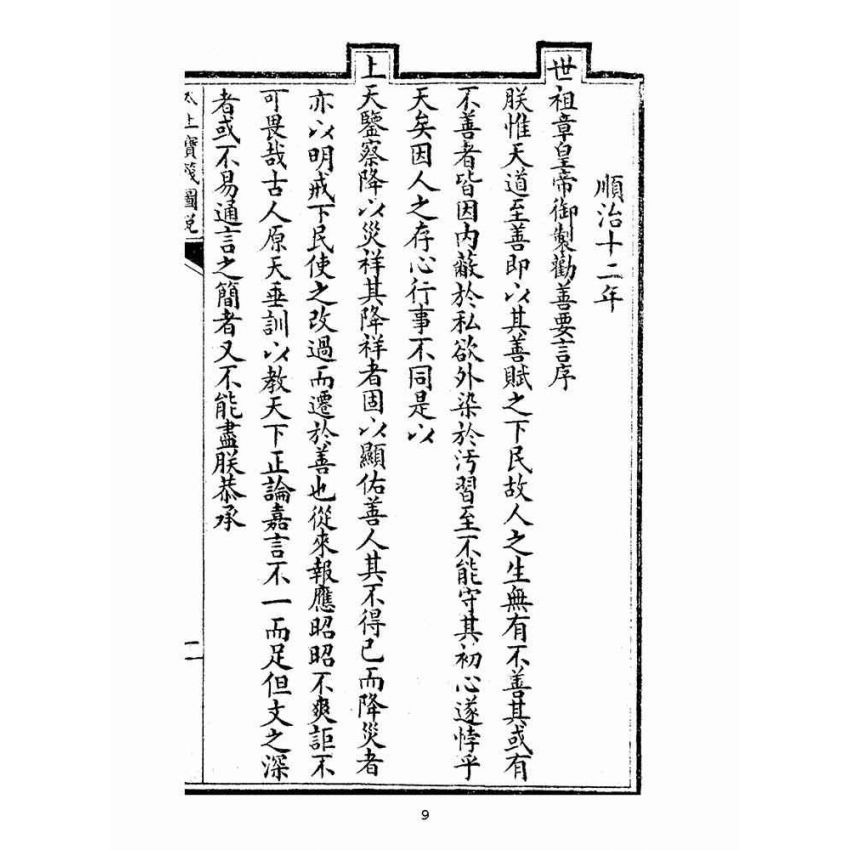 順治十二年
世祖章皇帝御製勸善要言序
朕惟天道至善即以其善賦之下民故人之生無有不善其或有
不善者皆因內蔽於私欲外染於汚習至不能守其初心遂悖乎
天矣因人之存心行事不同是以
上天鑒察降以災祥其降祥者固以顯佑善人其不得已而降災者
亦以明戒下民使之改過而遷於善也從來報應昭昭不爽詎不
可畏哉古人原天垂訓以教天下正論嘉言不一而足但文之深
者或不易通言之簡者又不能盡朕恭承
太上寶筏圖說
二
9